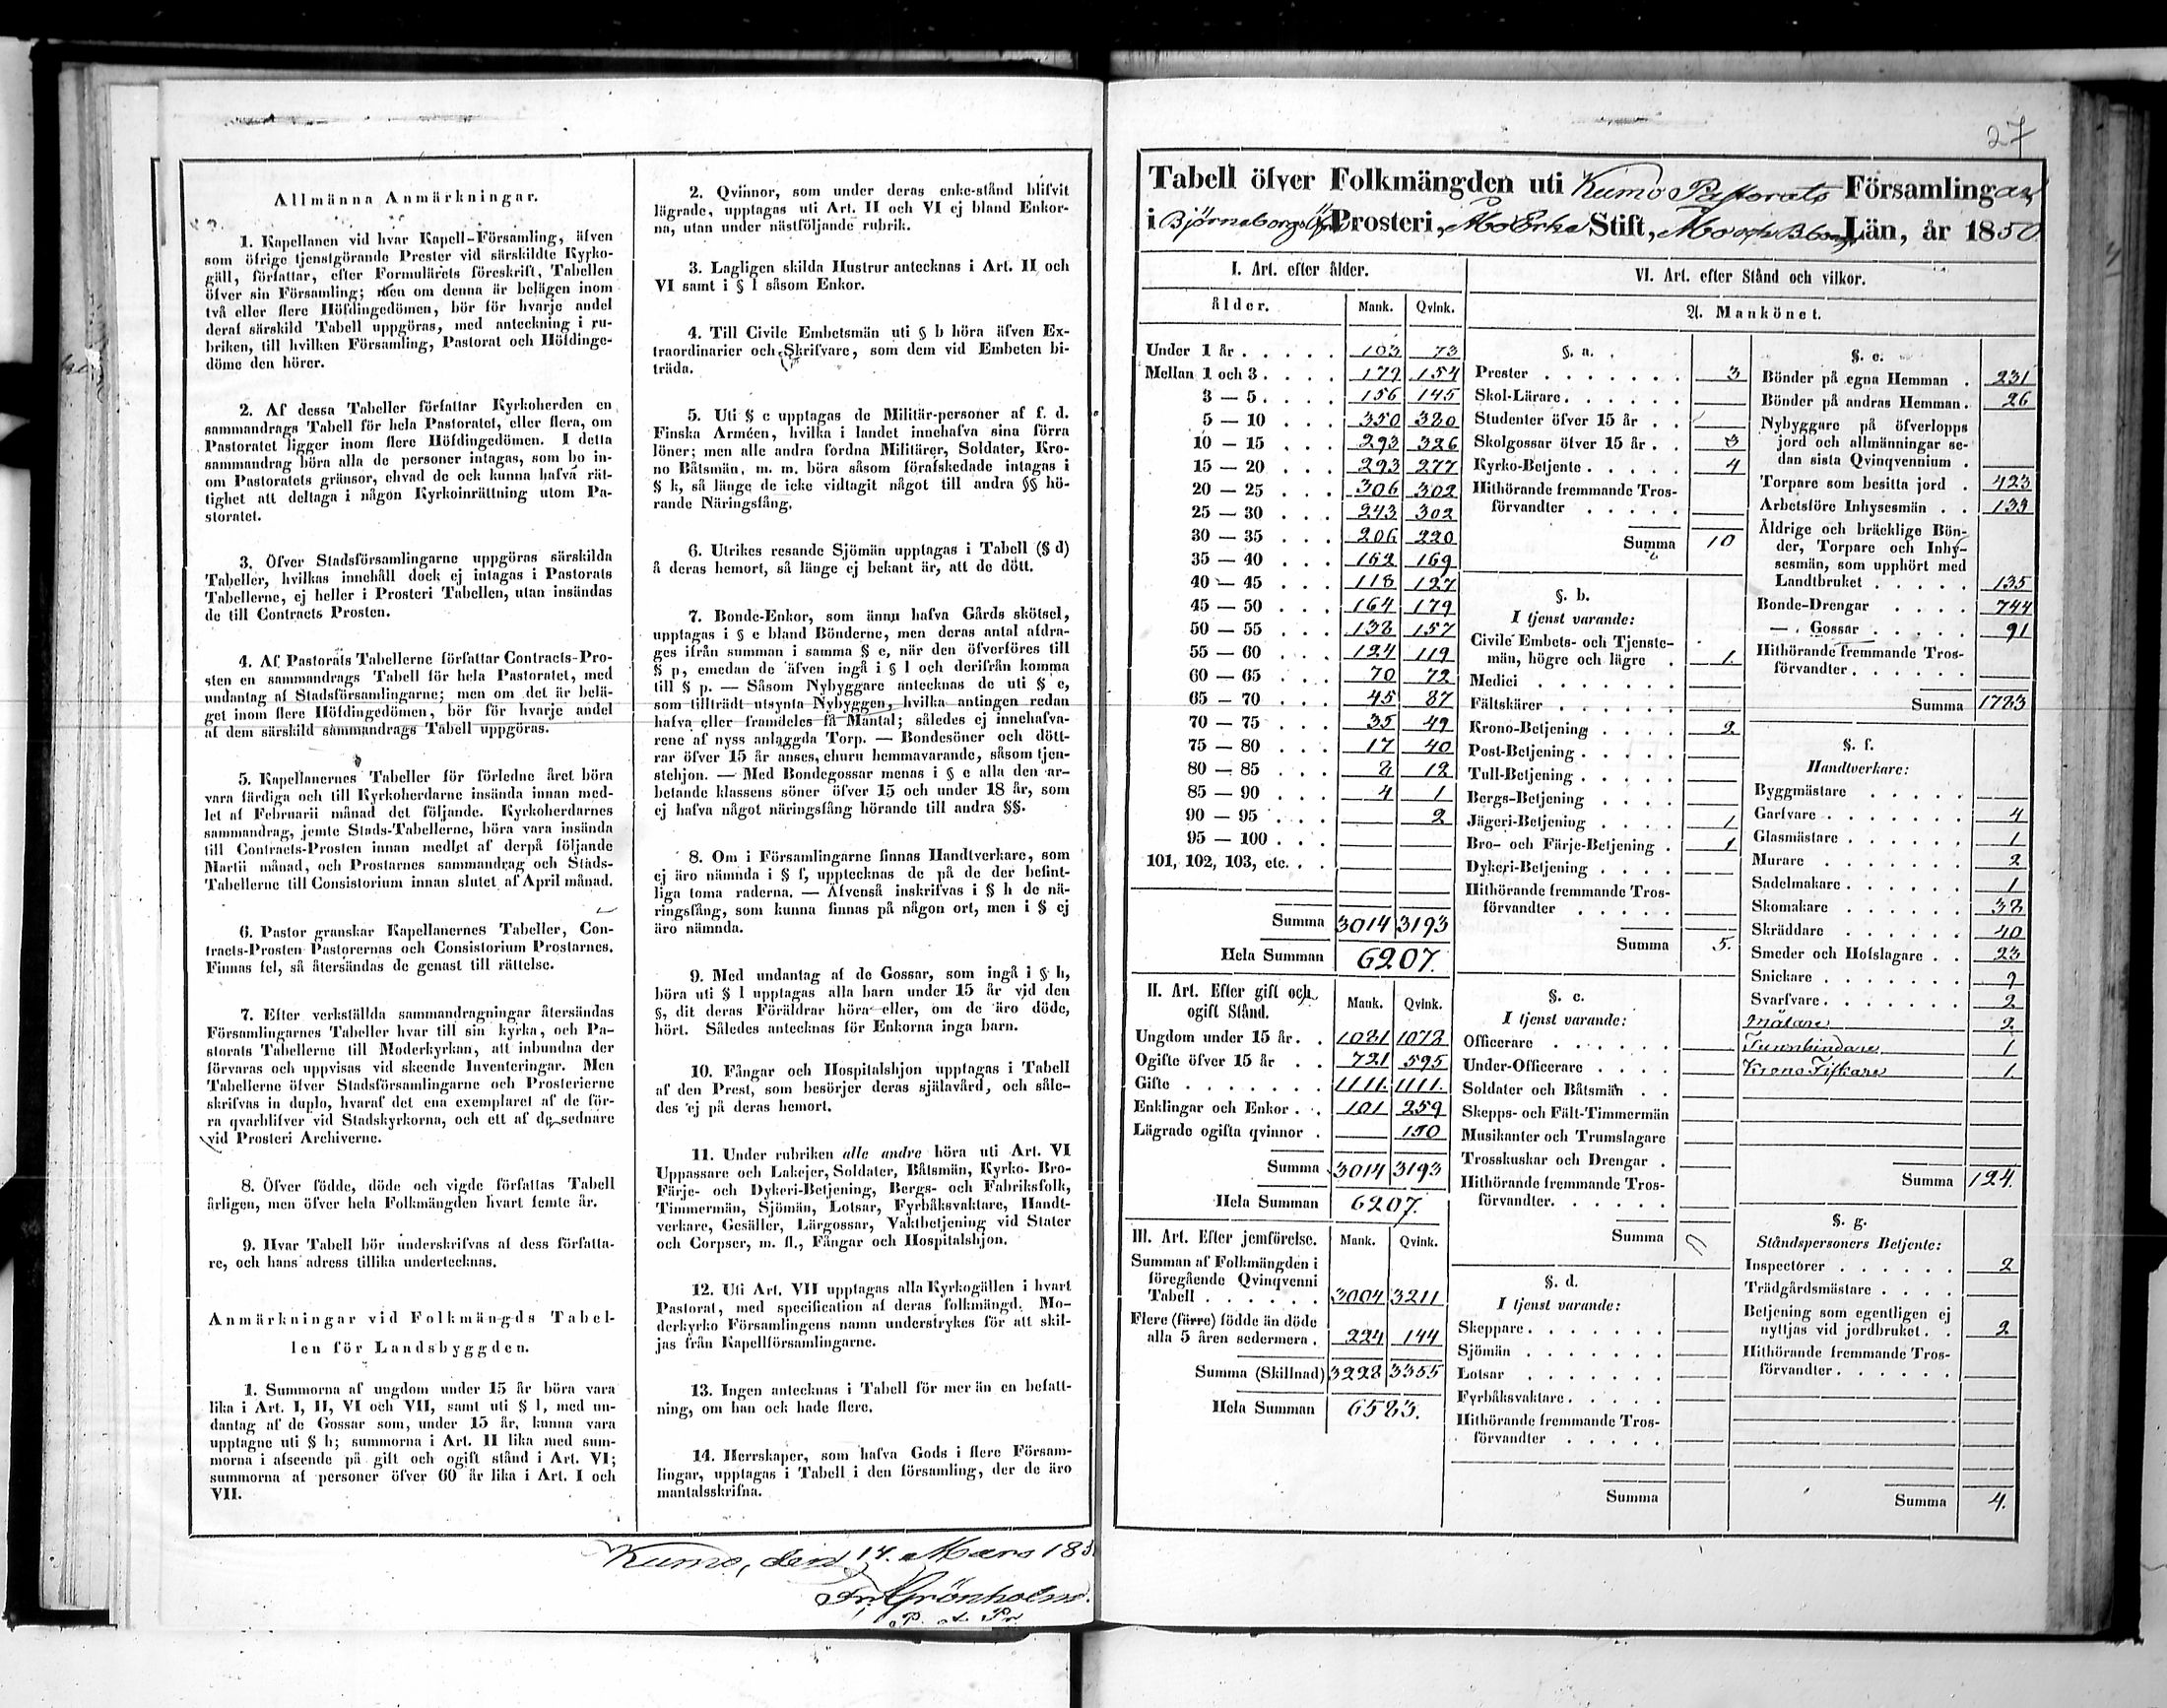 Allmänna Anmärkningar.
1. Kapellanen vid hvar Kapell-Församling, äfven
som öfrige tjenstgörande Prester vid särskildte Kyrko-
gäll, författar, efter Formulärets föreskrift, Tabellen
öfver sin Församling; men om denna är belägen inom
två eller flere Höfdingedömen, bör för hvarje andel
deraf särskild Tabell uppgöras, med anteckning i ru-
briken, till hvilken Församling, Pastorat och Höfdinge-
döme den hörer.
2. Af dessa Tabeller författar Kyrkoherden en
sammandrags Tabell för hela Pastoratet, eller flera, om
Pastoratet ligger inom flere Höfdingedömen. I detta
sammandrag böra alla de personer intagas, som bo in-
om Pastoratets gränsor, ehvad de ock kunna hafva rät-
tighet att deltaga i någon Kyrkoinrättning utom Pa-
storatet.
3. Öfver Stadsförsamlingarne uppgöras särskilda
Tabeller, hvilkas innehåll dock ej intagas i Pastorats
Tabellerne, ej heller i Prosteri Tabellen, utan insändas
de till Contracts Prosten.
4. Af Pastorats Tabellerne författar Contracts-Pro-
sten en sammandrags Tabell för hela Pastoratet, med
undantag af Stadsförsamlingarne; men om det är belä-
get inom flere Höfdingedömen, bör för hvarje andel
af dem särskild sammandrags Tabell uppgöras.
5. Kapellanernes Tabeller för förledne året böra
vara färdiga och till Kyrkoherdarne insända innan med-
let af Februarii månad det följande. Kyrkoherdarnes
sammandrag, jemte Stads-Tabellerne, böra vara insända
till Contracts-Prosten innan medlet af derpå följande
Martii månad, och Prostarnes sammandrag och Stads-
Tabellerne till Consistorium innan slutet af April månad.
6. Pastor granskar Kapellanernes Tabeller, Con-
tracts-Prosten Pastorernas och Consistorium Prostarnes.
Finnas fel, så återsändas de genast till rättelse.
7. Efter verkställda sammandragningar återsändas
Församlingarnes Tabeller hvar till sin kyrka, och Pa-
storats Tabellerne till Moderkyrkan, att inbundna der
förvaras och uppvisas vid skeende Inventeringar. Men
Tabellerne öfver Stadsförsamlingarne och Prosterierne
skrifvas in duplo, hvaraf det ena exemplaret af de för-
ra qvarblifver vid Stadskyrkorna, och ett af de sednare
vid Prosteri Archiverne.
8. Öfver födde, döde och vigde författas Tabell
årligen, men öfver hela Folkmängden hvart femte år.
9. Hvar Tabell bör underskrifvas af dess författa-
re, och hans adress tillika undertecknas.
Anmärkningar vid Folkmängds Tabel-
len för Landsbyggden.
1. Summorna af ungdom under 15 år böra vara
lika i Art. I, II, VI och VII, samt uti § l, med un-
dantag af de Gossar som, under 15 år, kunna vara
upptagne uti § h; summorna i Art. II lika med sum-
morna i afseende på gift och ogift stånd i Art. VI;
summorna af personer öfver 60 år lika i Art. I och
VII.
2. Qvinnor, som under deras enke-stånd blifvit
lägrade, upptagas uti Art. II och VI ej bland Enkor-
na, utan under nästföljande rubrik.
3. Lagligen skilda Hustrur antecknas i Art. II och
VI samt i § l såsom Enkor.
4. Till Civile Embetsmän uti § b höra äfven Ex-
traordinarier och Skrifvare, som dem vid Embeten bi-
träda.
5. Uti § c upptagas de Militär-personer af f. d.
Finska Arméen, hvilka i landet innehafva sina förra
löner; men alle andra fordna Militärer, Soldater, Kro-
no Båtsmän, m. m. böra såsom förafskedade intagas i
§ k, så länge de icke vidtagit något till andra §§ hö-
rande Näringsfång.
6. Utrikes resande Sjömän upptagas i Tabell (§ d)
å deras hemort, så länge ej bekant är, att de dött.
7. Bonde-Enkor, som ännu hafva Gårds skötsel,
upptagas i § e bland Bönderne, men deras antal afdra-
ges ifrån summan i samma § e, när den öfverföres till
§ p, emedan de äfven ingå i § l och derifrån komma
till § p. — Såsom Nybyggare antecknas de uti § e,
som tillträdt utsynta Nybyggen, hvilka antingen redan
hafva eller framdeles få Mantal; således ej innehafva-
rene af nyss anlaggda Torp. — Bondesöner och dött-
rar öfver 15 år anses, churu hemmavarande, såsom tjen-
stehjon. — Med Bondegossar menas i § e alla den ar-
betande klassens söner öfver 15 och under 18 år, som
ej hafva något näringsfång hörande till andra §§.
8. Om i Församlingarne finnas Handtverkare, som
ej äro nämnda i § f, upptecknas de på de der befint-
liga toma raderna. — Äfvenså inskrifvas i § h de nä-
ringsfång, som kunna finnas på någon ort, men i § ej
äro nämnda.
9. Med undantag af de Gossar, som ingå i § h,
böra uti § l upptagas alla barn under 15 år vid den
§, dit deras Föräldrar höra eller, om de äro döde,
hört. Således antecknas för Enkorna inga barn.
10. Fångar och Hospitalshjon upptagas i Tabell
af den Prest, som besörjer deras själavård, och såle-
des ej på deras hemort.
11. Under rubriken alle andre höra uti Art. VI
Uppassare och Lakejer, Soldater, Båtsmän, Kyrko- Bro-
Färje- och Dykeri-Betjening, Bergs- och Fabriksfolk,
Timmermän, Sjömän, Lotsar, Fyrbåksvaktare, Handt-
verkare, Gesäller, Lärgossar, Vaktbetjening vid Stater
och Corpser, m. fl., Fångar och Hospitalshjon.
12. Uti Art. VII upptagas alla Kyrkogällen i hvart
Pastorat, med specification af deras folkmängd. Mo-
derkyrko Församlingens namn understrykes för att skil-
jas från Kapellförsamlingarne.
13. Ingen antecknas i Tabell för mer än en befatt-
ning, om han ock hade flere.
14. Herrskaper, som hafva Gods i flere Försam-
lingar, upptagas i Tabell i den församling, der de äro
mantalsskrifna.
Kumo, den 14. Mars 185
Fr. Grönholm.
P. A. Pr
27
Tabell öfver Folkmängden uti Kumo Pastorats Församlingar
i Björneborgs Prosteri, Stift, Län, år 1850.
I. Art. efter ålder.
Ålder. Mank. Qvink.
Under 1 år . . . . . 103 73
Mellan 1 och 3 . . . . 179 154
3 — 5 . . . . 156 145
5 — 10 . . . 350 380
10 — 15 . . . 293 326
15 — 20 . . . 293 277
20 — 25 . . . 306 302
25 — 30 . . . 243 302
30 — 35 . . . 206 220
35 — 40 . . . 162 169
40 — 45 . . . 118 127
45 — 50 . . . 164 179
50 — 55 . . . 138 157
55 — 60 . . . 124 119
60 — 65 . . . 70 72
65 — 70 . . . 45 87
70 — 75 . . . 35 49
75 — 80 . . . 17 40
80 — 85 . . . 8 12
85 — 90 . . . 4 1
90 — 95 . . . 2
95 — 100 . . .
101, 102, 103, etc. . .
Summa 3014 3193
Hela Summan 6207.
II. Art. Efter gift och
ogift Stånd. Mank. Qvink.
Ungdom under 15 år. . 1081 1078
Ogifte öfver 15 år . . 721 595
Gifte . . . . . . . 1111. 1111.
Enklingar och Enkor . . 101 259
Lägrade ogifta qvinnor . 150
Summa 3014 3193
Hela Summan 6207.
III. Art. Efter jemförelse. Mank. Qvink.
Summan af Folkmängden i
föregående Qvinqvenni
Tabell . . . . . . 3004 3211
Flere (färre) födde än döde
alla 5 åren sedermera . 224 144
Summa (Skillnad) 3228 3355
Hela Summan 6583.
VI. Art. efter Stånd och vilkor.
A. Mankönet.
§. a.
Prester . . . . . . . 3
Skol-Lärare . . . . . .
Studenter öfver 15 år . .
Skolgossar öfver 15 år . . 3
Kyrko-Betjente . . . . . 4
Hithörande fremmande Tros-
förvandter . . . . .
Summa 10
§. b.
I tjenst varande:
Civile Embets- och Tjenste-
män, högre och lägre . 1.
Medici . . . . . . .
Fältskärer . . . . . .
Krono-Betjening . . . . 2
Post-Betjening . . . . .
Tull-Betjening . . . . .
Bergs-Betjening . . . .
Jägeri-Betjening . . . . 1
Bro- och Färje-Betjening . 1
Dykeri-Betjening . . . .
Hithörande fremmande Tros-
förvandter . . . . .
Summa 5.
§. c.
I tjenst varande:
Officerare . . . . . .
Under-Officerare . . . .
Soldater och Båtsmän . .
Skepps- och Fält-Timmermän
Musikanter och Trumslagare
Trosskuskar och Drengar .
Hithörande fremmande Tros-
förvandter. . . . . .
Summa 0
§. d.
I tjenst varande:
Skeppare . . . . . .
Sjömän . . . . . . .
Lotsar . . . . . . .
Fyrbåksvaktare . . . . .
Hithörande fremmande Tros-
förvandter . . . . .
Summa
§. e.
Bönder på egna Hemman . 231
Bönder på andras Hemman . 26
Nybyggare på öfverlopps
jord och allmänningar se-
dan sista Qvinqvennium .
Torpare som besitta jord . 423
Arbetsföre Inhysesmän . . 133
Äldrige och bräcklige Bön-
der, Torpare och Inhy-
sesmän, som upphört med
Landtbruket . . . . . 135
Bonde-Drengar . . . . 744
— Gossar . . . . . 91
Hithörande fremmande Tros-
förvandter . . . . . .
Summa 1783
§. f.
Handtverkare:
Byggmästare . . . . .
Garfvare . . . . . . . 4
Glasmästare . . . . . . 1
Murare . . . . . . . 2
Sadelmakare . . . . . . 1
Skomakare . . . . . . 38
Skräddare . . . . . . 40
Smeder och Hofslagare . . 23
Snickare . . . . . . . 9
Svarfvare . . . . . . . 2
Målare 2
Tunnbindare 1
Krono Fiskare 1.
Summa 124.
§. g.
Ståndspersoners Betjente:
Inspectorer . . . . . . 2
Trädgårdsmästare . . . .
Betjening som egentligen ej
nyttjas vid jordbruket . . 2
Hithörande fremmande Tros-
förvandter . . . . . .
Summa 4.